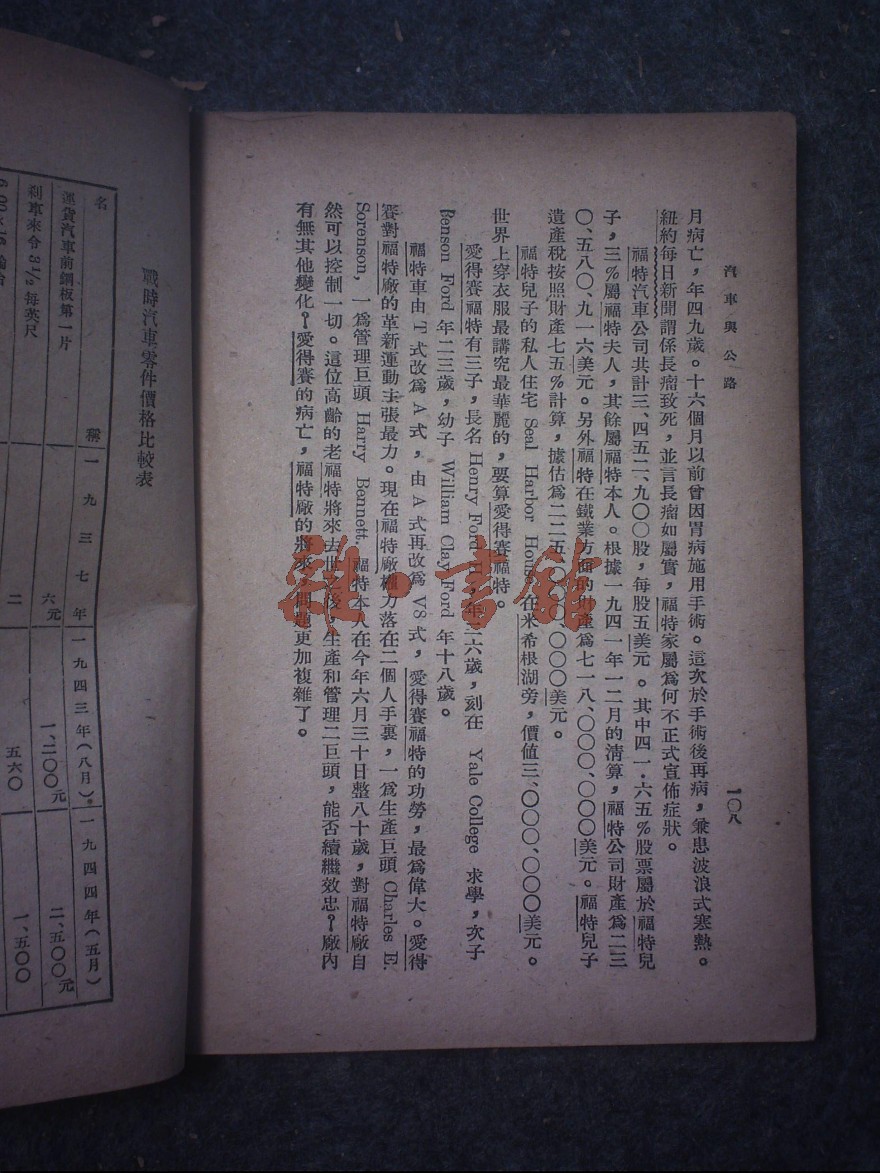 汽車與公路
一〇八
月病亡，年四九歲。十六個月以前曾因胃病施用手術。這次於手術後再病，兼患波浪式寒熱。
紐約每日新聞謂係長瘤致死，並言長瘤如屬實，福特家屬爲何不正式宣佈症狀。
福特汽車公司共計三、四五二、九〇〇股，每股五美元。其中四一·六五％股票屬於福特兒
子，三％屬福特夫人，其餘屬福特本人。根據一九四一年一二月的清算，福特公司財產爲二三
〇、五八〇、九一六美元。另外福特在鐵業方面的財產爲七一八、〇〇〇、〇〇〇美元。福特兒子
遺產稅按照財產七五％計算，據估爲二二五、〇〇〇、〇〇〇美元。
福特兒子的私人住宅 Seal Harbor House 在米希根湖旁，價值三、〇〇〇、〇〇〇美元。
世界上穿衣服最講究最華麗的，要算愛得賽福特。
愛得賽福特有三子，長名 Henry Ford II，年二六歲，刻在 Yale College 求學，次子
Benson Ford 年二三歲，幼子 William Clay Ford 年十八歲。
福特車由T式改爲A式，由A式再改爲V8式，愛得賽福特的功勞，最爲偉大。愛得
賽對福特廠的革新運動主張最力。現在福特廠權力落在二個人手裏，一爲生產巨頭 Charles E.
Sorenson, 一爲管理巨頭 Harry Bennett. 福特本人在今年六月三十日整八十歲，對福特廠自
然可以控制一切。這位高齡的老福特將來去世之後，生產和管理二巨頭，能否續繼效忠？廠內
有無其他變化？愛得賽的病亡，福特廠的將來，問題更加複雜了。
雜·書館
戰時汽車零件價格比較表
名稱 一九三七年 一九四三年（八月） 一九四四年（五月）
運貨汽車前鋼板第一片 六元 一、二〇〇元 二、五〇〇元
刹車來令 3½ 每英尺 二 五六〇 一、五〇〇